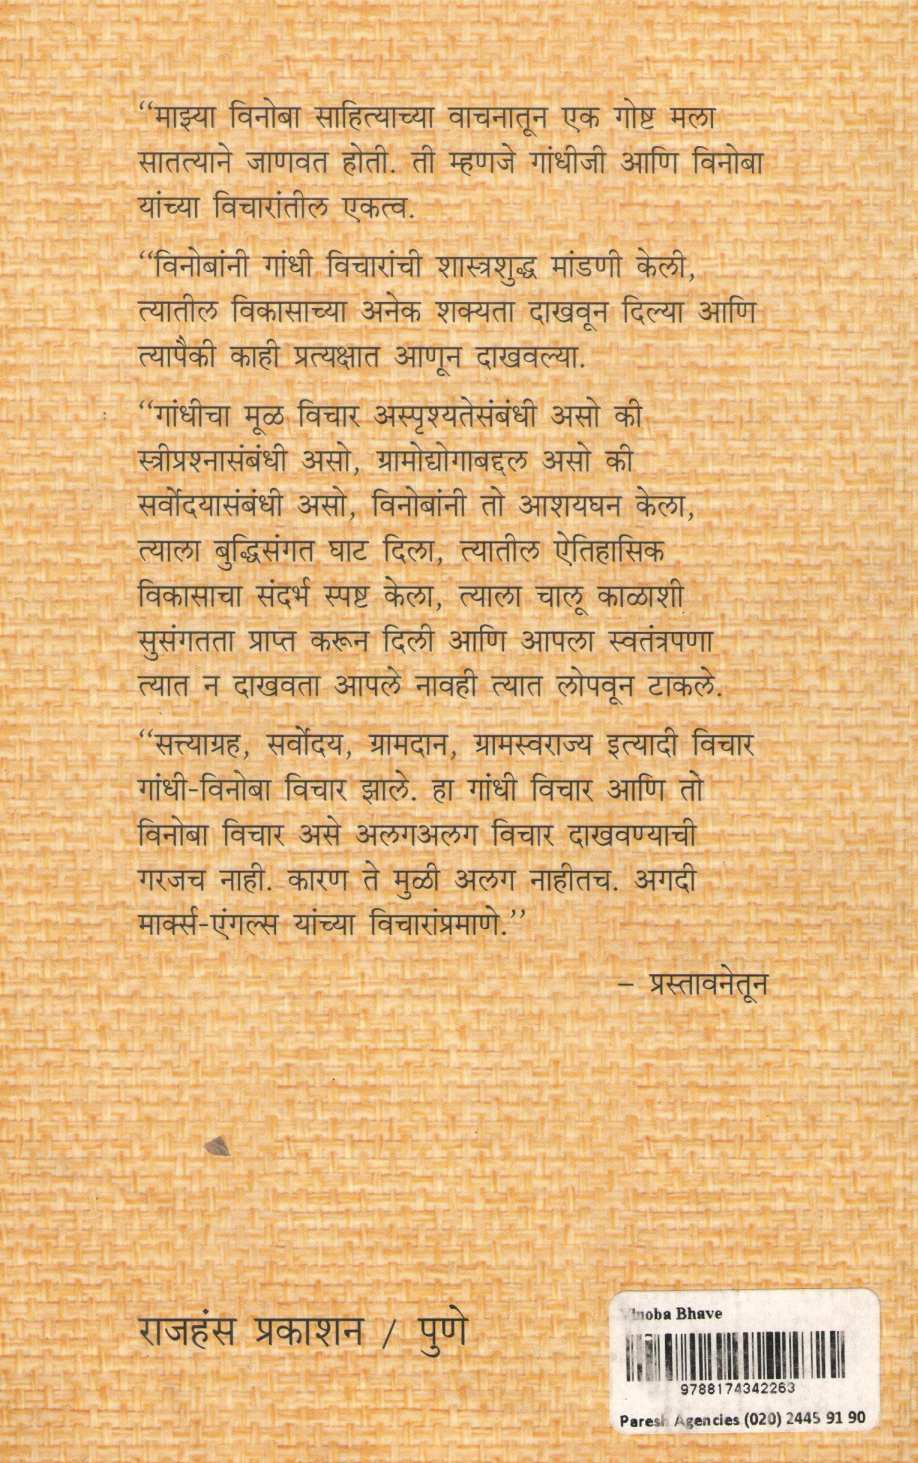 “माझ्या विनोबा साहित्याच्या वाचनातून एक गोष्ट मला
सातत्याने जाणवत होती. ती म्हणजे गांधीजी आणि विनोबा
यांच्या विचारांतील एकत्व.
“विनोबांनी गांधी विचारांची शास्त्रशुद्ध मांडणी केली,
त्यातील विकासाच्या अनेक शक्यता दाखवून दिल्या आणि
त्यापैकी काही प्रत्यक्षात आणून दाखवल्या.
“गांधीचा मूळ विचार अस्पृश्यतेसंबंधी असो की
स्त्रीप्रश्नासंबंधी असो, ग्रामोद्योगाबद्दल असो की
सर्वोदयासंबंधी असो, विनोबांनी तो आशयघन केला,
त्याला बुद्धिसंगत घाट दिला, त्यातील ऐतिहासिक
विकासाचा संदर्भ स्पष्ट केला, त्याला चालू काळाशी
सुसंगतता प्राप्त करून दिली आणि आपला स्वतंत्रपणा
त्यात न दाखवता आपले नावही त्यात लोपवून टाकले.
“सत्त्याग्रह, सर्वोदय, ग्रामदान, ग्रामस्वराज्य इत्यादी विचार
गांधी-विनोबा विचार झाले. हा गांधी विचार आणि तो
विनोबा विचार असे अलगअलग विचार दाखवण्याची
गरजच नाही. कारण ते मुळी अलग नाहीतच. अगदी
मार्क्स-एंगल्स यांच्या विचारांप्रमाणे.”
– प्रस्तावनेतून
राजहंस प्रकाशन / पुणे
Vinoba Bhave
9788174342263
Paresh Agencies (020) 2445 91 90